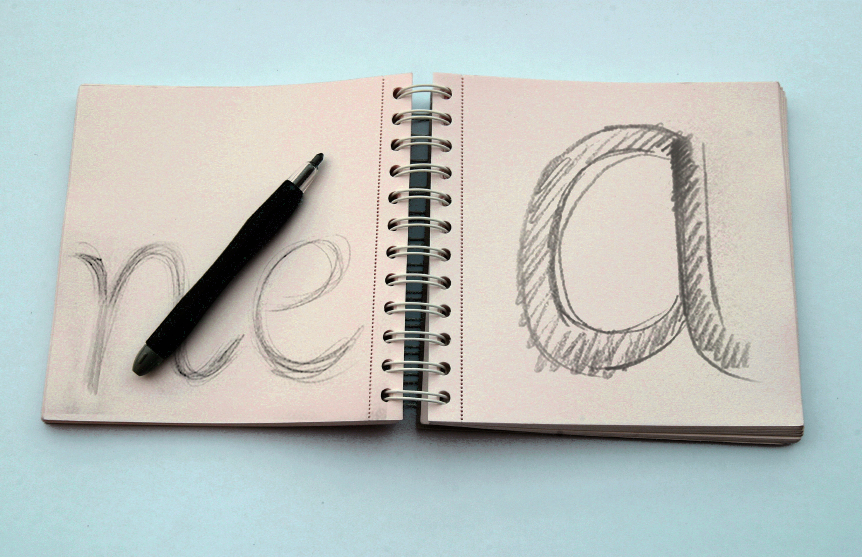 ne a